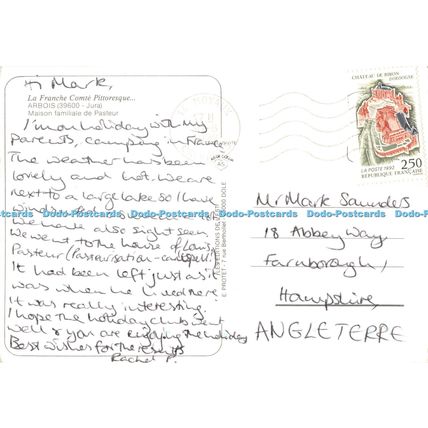 Hi Mark,
La Franche Comté Pittoresque...
ARBOIS (39600 - Jura)
Maison familiale de Pasteur
I'm on holiday with my
Parents, camping in France
The weather has been
lovely and hot. We are
next to a large lake so I have
We have also sight seen
We went to the house of Louis
Pasteur (Pasteurisation -
It had been left just as it
was when he lived here!
It was really interesting.
I hope the holiday clubs went
well & you are enjoying the holiday
Best wishes for the results
Rachel P.
CHÂTEAU DE BIRON
DORDOGNE
LA POSTE 1992
2,50
RÉPUBLIQUE FRANÇAISE
Mr Mark Saunders
18 Abbey Way
Farnborough,
Hampshire,
ANGLETERRE
Dodo-Postcards Dodo-Postcards Dodo-Postcards Dodo-Postcards Dodo-Postcards